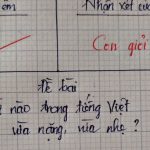 Nhận xét củ
Con giỏi
Đề bài
nào trong tiếng Việt
vừa nặng, vừa nhẹ ?